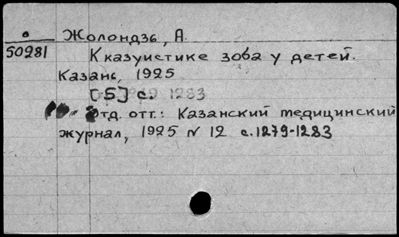 Жолондзь, А.
50281
К казуистике зоба у детей.
Казань, 1925
[5] с. 1283
Отд. отт.: Казанский медицинский
журнал, 1925 N 12 с. 1279-1283